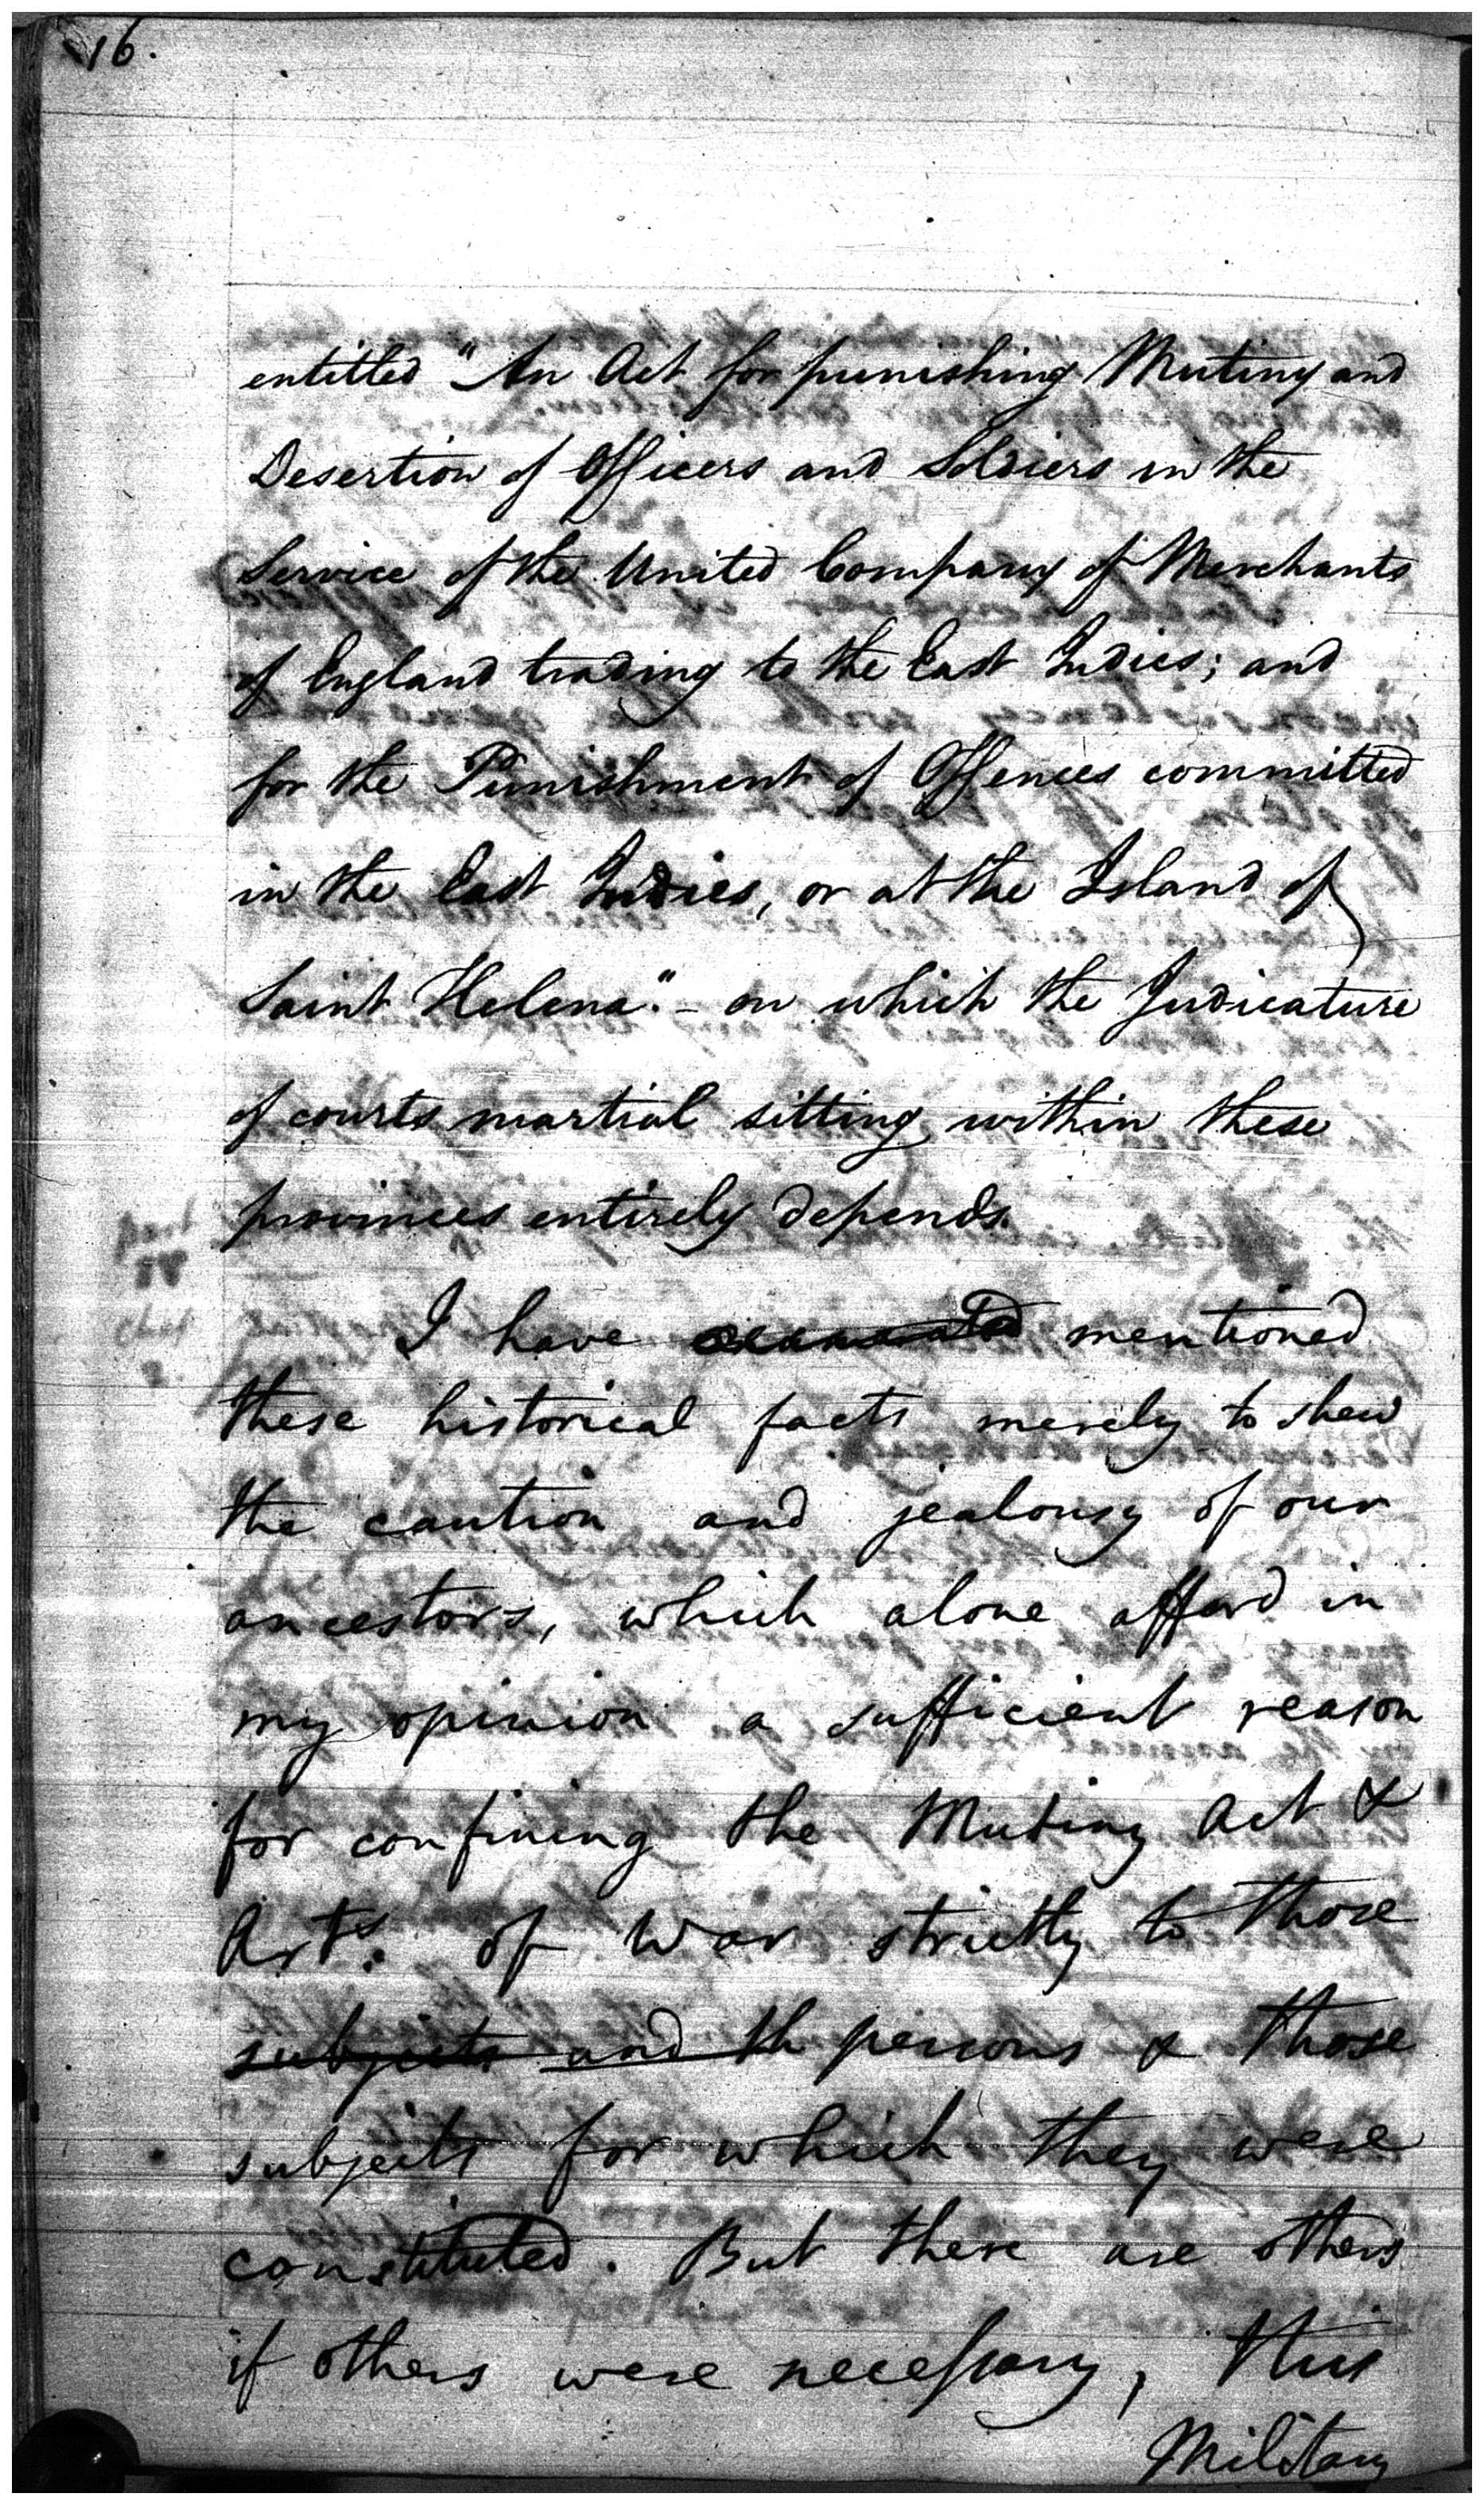 16.
entitled "An Act for punishing Mutiny and
Desertion of Officers and Soldiers in the
Service of the United Company of Merchants
of England trading to the East Indies; and
for the Punishment of Offences committed
in the East Indies, or at the Island of
Saint Helena." - on which the Judicature
of courts martial sitting within these
provinces entirely depends.
I have mentioned
these historical facts merely to shew
the caution and jealousy of our
ancestors, which alone afford in
my opinion a sufficient reason
for confining the Mutiny Act &
Arts. of War strictly to those
subjects and th persons & those
subjects for which they were
constituted. But there are others
if others were necessary, this
Military
part
IV
chap
2.